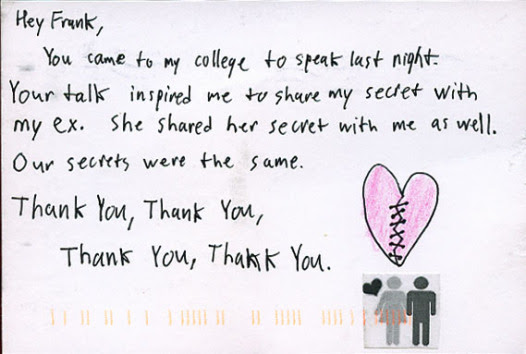 Hey Frank,
You came to my college to speak last night.
Your talk inspired me to share my secret with
my ex. She shared her secret with me as well.
Our secrets were the same.
Thank You, Thank You,
Thank You, Thank You.